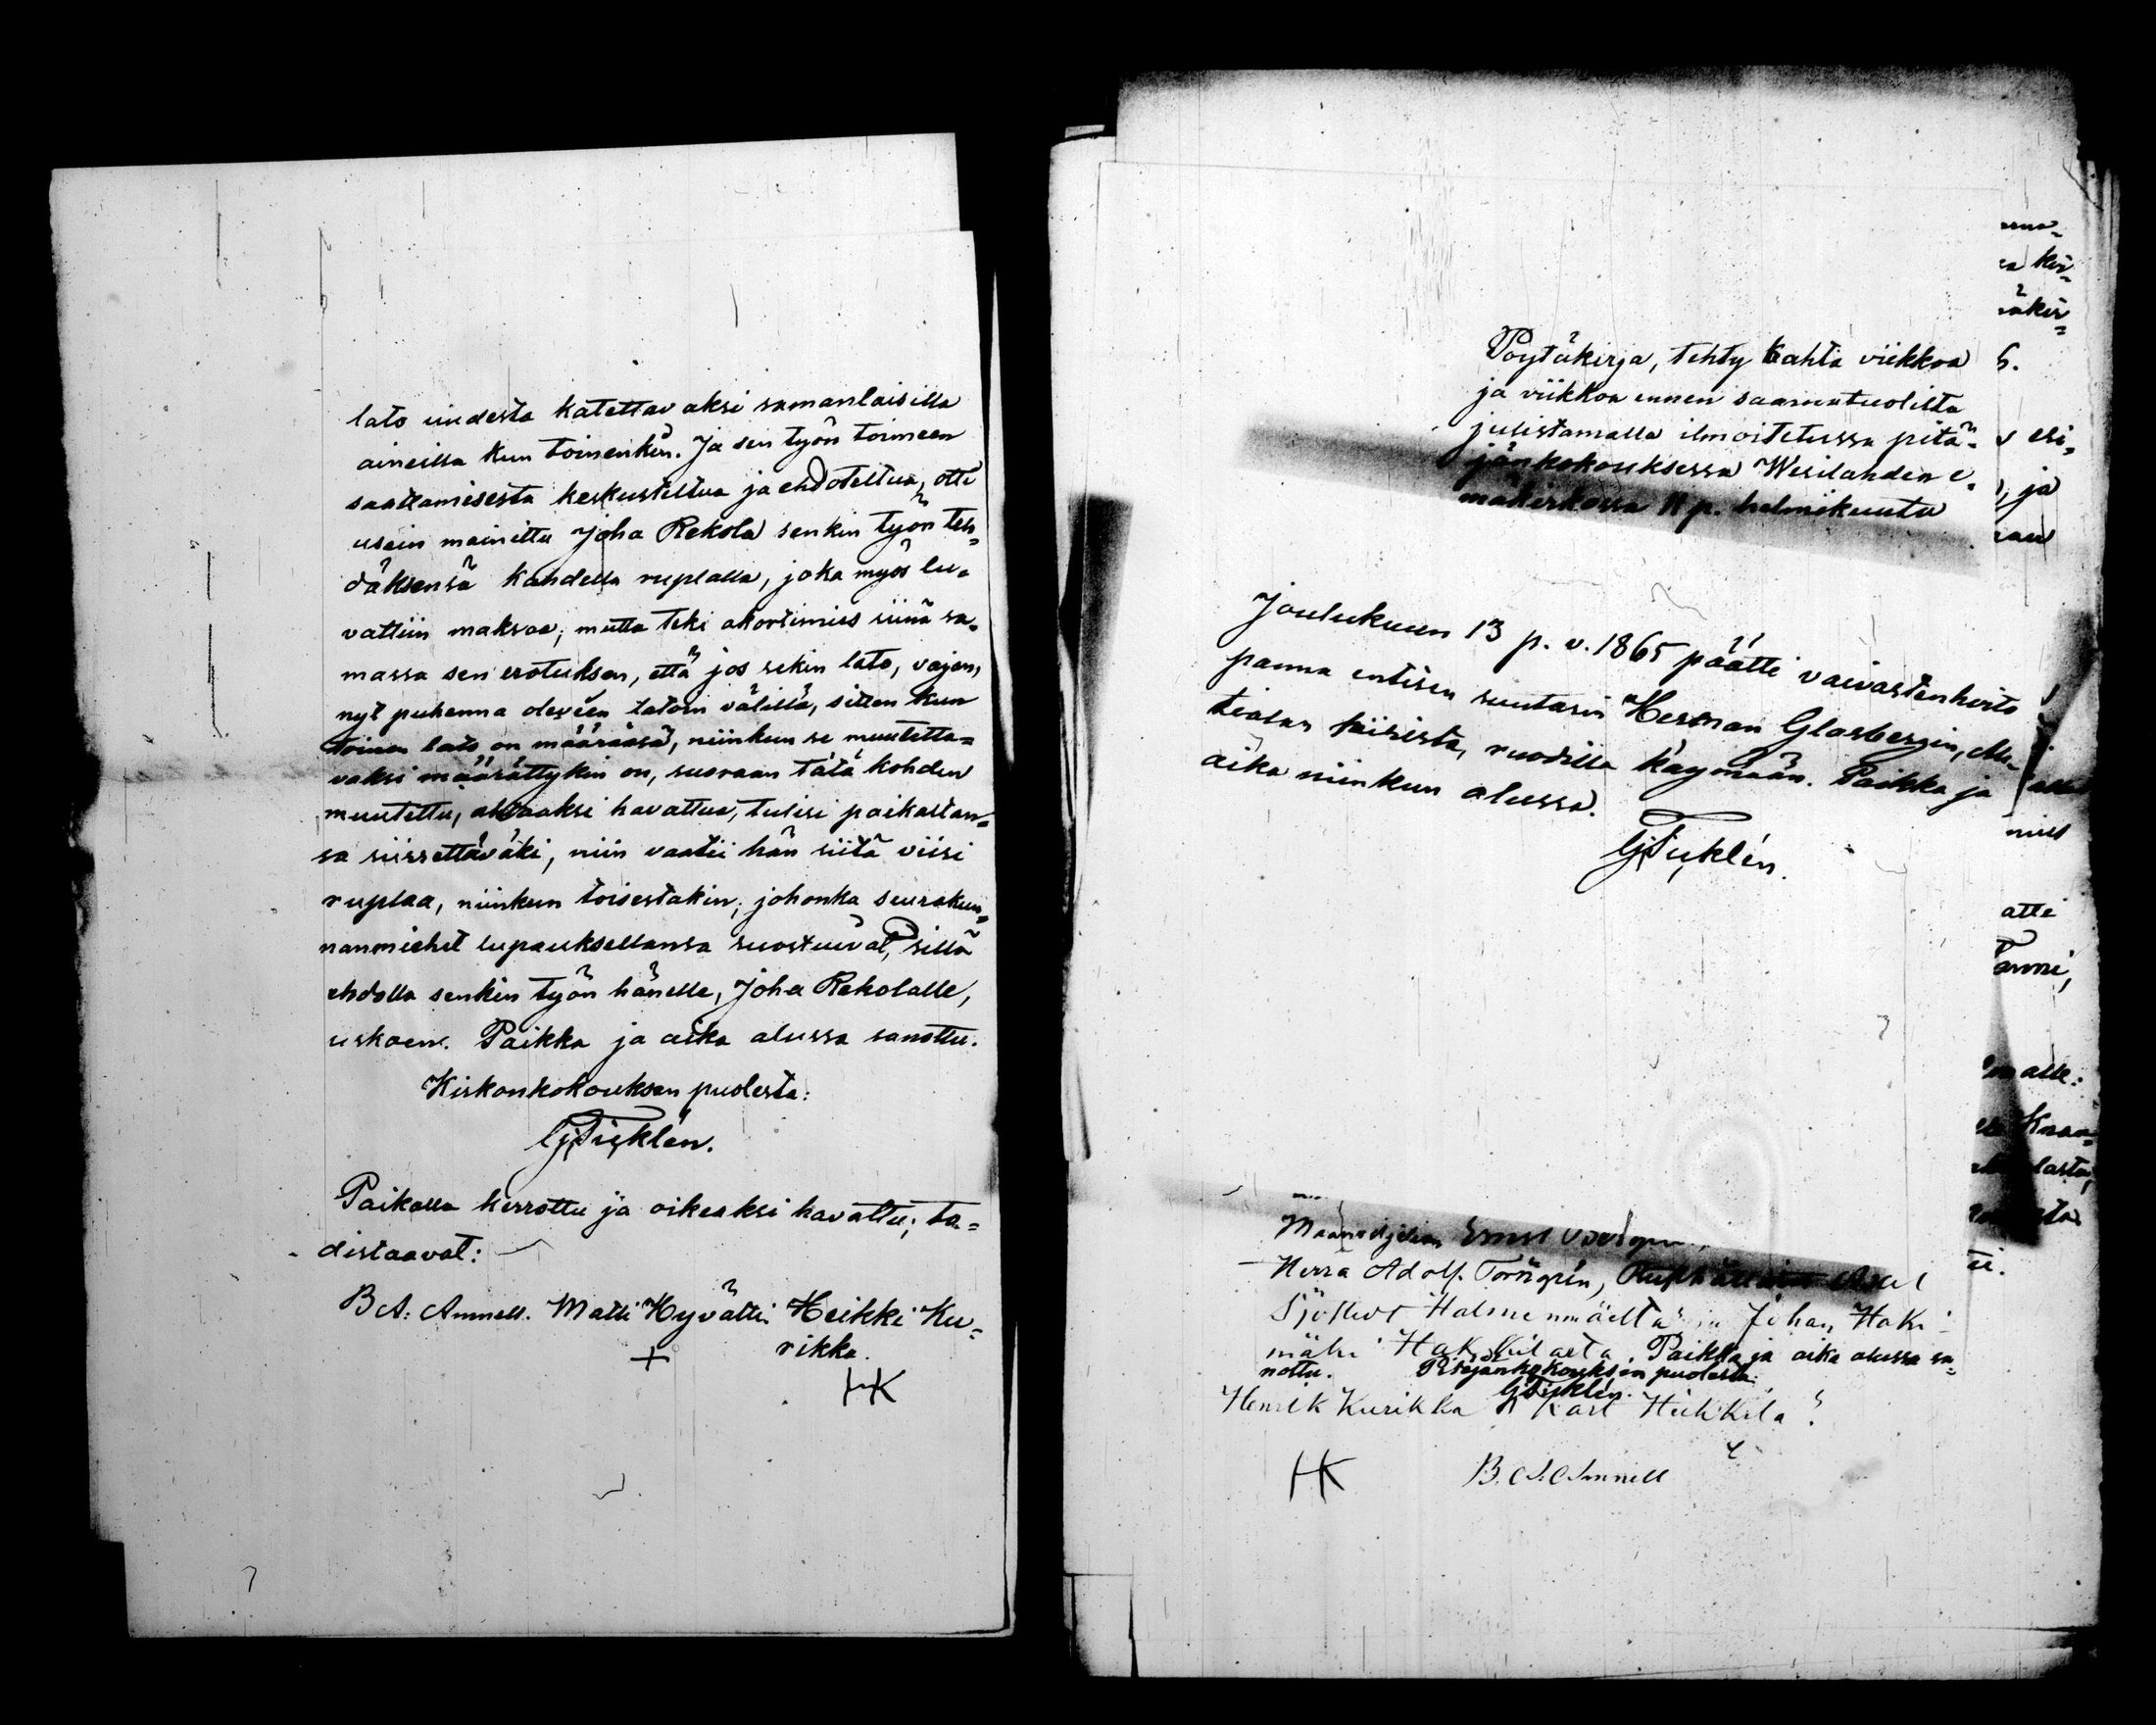 lato uudesta katettavaksi samanlaisilla
aineilla kun toinenkin. Ja sen työn toimeen
saattamisesta keskusteltua ja ehdoteltua, otti
usein mainittu Joha Rekola senkin työn teh=
däksensä kahdella ruplalla, joka myös lu=
vattiin maksaa; mutta teki akortimies siinä sa=
massa sen erotuksen, että jos sekin lato, vajan,
nyt puhenna oleven latoin välillä, sitten kun
toinen lato on määräsä, niinkun se muutetta=
vaksi määrättykin on, suoraan tätä kohden
muutettu, ahtaaksi havattua, tulisi paikastan=
sa siirrettäväki, niin vaatii hän siitä viisi
ruplaa, niinkun toisestakin; johonka seurakun=
nanmiehet lupauksellansa suostuivat, sillä
ehdolla senkin työn hänelle, Joha Rekolalle,
uskoen. Paikka ja aika alussa sanottu.
Kirkonkokouksen puolesta:
Gj Fiuklén.
Paikalla kerrottu ja oikeaksi havattu; to=
distaavat:
B A: Amnell. Matti Hyvätti Heikki Ku=
rikka.
+
HK
Pöytäkirja, tehty kahta viikkoa
ja viikkoa ennen saarnatuolilta
julistamalla ilmoitetussa pitä=
jänkokouksessa Wesilahden e=
mäkirkossa 11 p. helmikuuta
Joulukuun 13 p. v. 1865 päätti vaivastenhoito
panna entisen suutarin Herman Glasbergin,
tialan piiristä, ruodilla käymään. Paikka ja
aika niinkun alussa.
Gj Fiuklén.
Herra Adolf Törngrén,
Halmeenmäeltä ja Johan Haki=
mäki Paikka ja aika alussa sa=
nottu. Pitäjänkokouksen puolesta:
Gj Fiuklén.
Henrik Kurikka Karl Heikkilä
HK B. A. Amnell